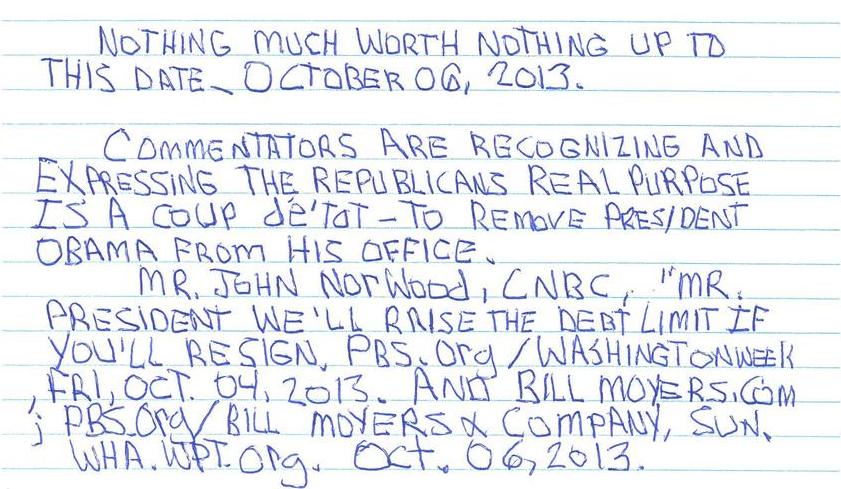 NOTHING MUCH WORTH NOTHING UP TO
THIS DATE_ OCTOBER 06, 2013.
COMMENTATORS ARE RECOGNIZING AND
EXPRESSING THE REPUBLICANS REAL PURPOSE
IS A COUP dé'TaT - TO REMOVE PRESIDENT
OBAMA FROM HIS OFFICE.
MR. JOHN NorWood, CNBC, "MR.
PRESIDENT WE'LL RAISE THE DEBT LIMIT IF
YOU'LL RESIGN. PBS.Org/WASHINGTONWEEK
, FRI, OCT. 04, 2013. AND BILL MOYERS.COM
; PBS.Org/BILL MOYERS & COMPANY, SUN.
WHA.WPT.Org. Oct. 06, 2013.